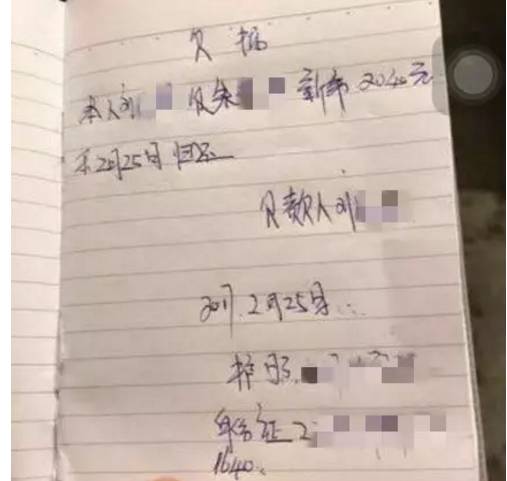 欠据
本人刘 欠朱 新币 2040元
于2月25日 归还
欠款人刘
2017.2月25号
护照.
身份证 2
1640.